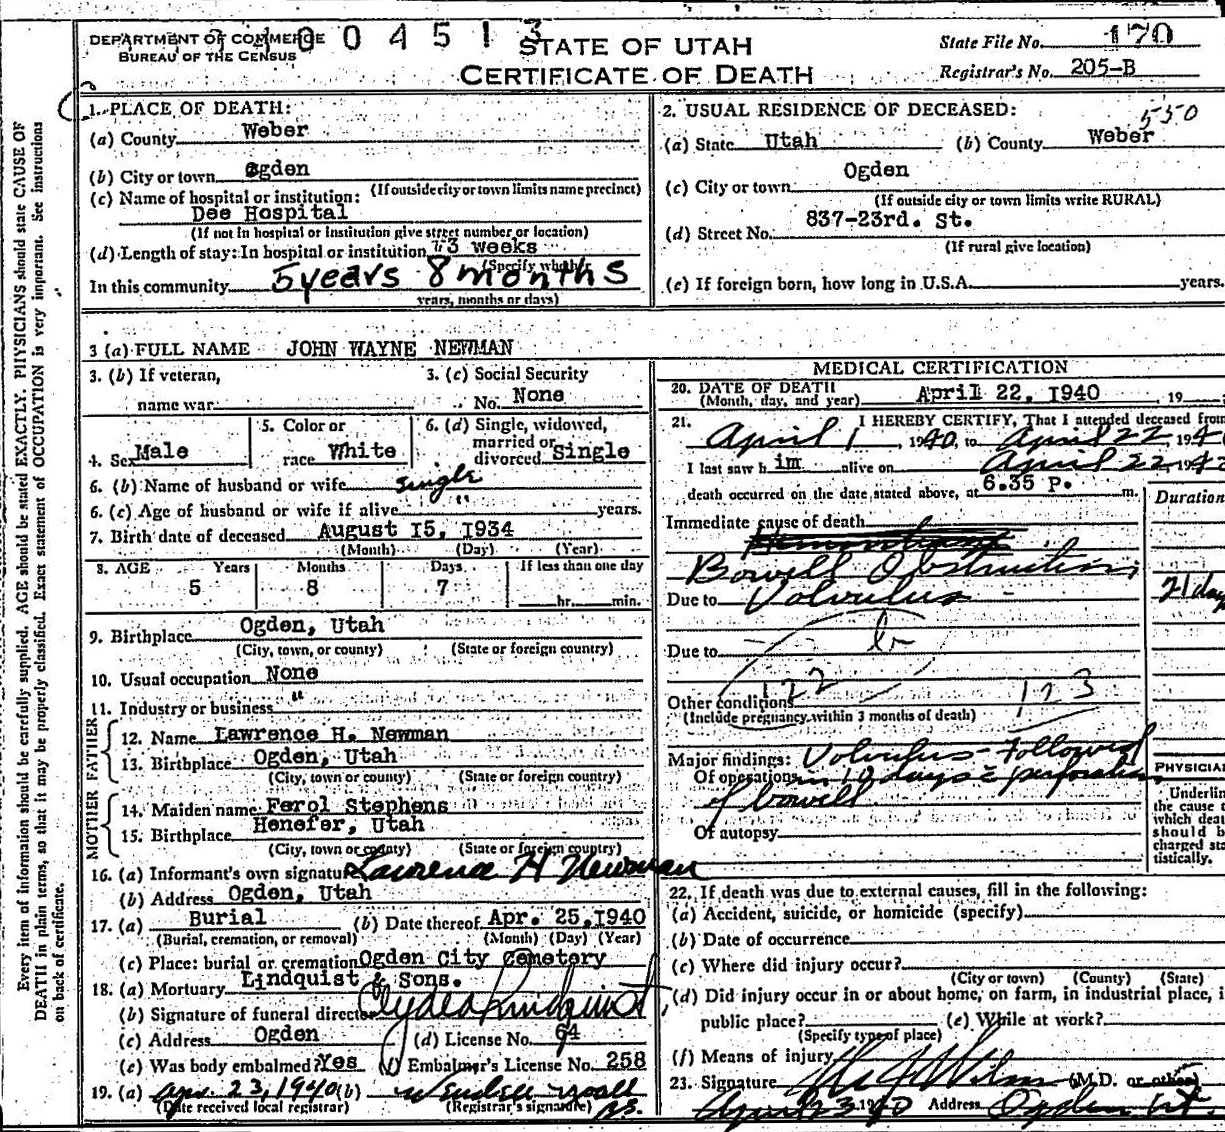 DEPARTMENT OF COMMERCE
BUREAU OF THE CENSUS
0 0 4 5 1 3
STATE OF UTAH
CERTIFICATE OF DEATH
State File No. 170
Registrar's No. 205-B
1. PLACE OF DEATH:
(a) County Weber
(b) City or town Ogden
(If outside city or town limits name precinct)
(c) Name of hospital or institution:
Dee Hospital
(If not in hospital or institution give street number or location)
(d) Length of stay: In hospital or institution 3 weeks
(Specify whether
In this community 5 years 8 months
years, months or days)
2. USUAL RESIDENCE OF DECEASED:
550
(a) State Utah (b) County Weber
(c) City or town Ogden
(If outside city or town limits write RURAL)
(d) Street No. 837-23rd. St.
(If rural give location)
(e) If foreign born, how long in U.S.A. years.
3 (a) FULL NAME JOHN WAYNE NEWMAN
3. (b) If veteran,
name war
3. (c) Social Security
No. None
4. Sex Male
5. Color or
race White
6. (d) Single, widowed,
married or
divorced Single
6. (b) Name of husband or wife single
6. (c) Age of husband or wife if alive " years.
7. Birth date of deceased August 15, 1934
(Month) (Day) (Year)
8. AGE Years Months Days If less than one day
5 8 7 hr. min.
9. Birthplace Ogden, Utah
(City, town, or county) (State or foreign country)
10. Usual occupation None
11. Industry or business "
FATHER
12. Name Lawrence H. Newman
13. Birthplace Ogden, Utah
(City, town or county) (State or foreign country)
MOTHER
14. Maiden name Ferol Stephens
15. Birthplace Henefer, Utah
(City, town or county) (State or foreign country)
16. (a) Informant's own signature Lawrence H Newman
(b) Address Ogden, Utah
17. (a) Burial (b) Date thereof Apr. 25, 1940
(Burial, cremation, or removal) (Month) (Day) (Year)
(c) Place: burial or cremation Ogden City Cemetery
18. (a) Mortuary Lindquist & Sons.
(b) Signature of funeral director Clyde Lindquist
(c) Address Ogden (d) License No. 64
(e) Was body embalmed? Yes (f) Embalmer's License No. 258
19. (a) Apr. 23, 1940 (b)
(Date received local registrar) (Registrar's signature)
MEDICAL CERTIFICATION
20. DATE OF DEATH
(Month, day, and year) April 22, 1940, 19
21. I HEREBY CERTIFY, That I attended deceased from
April 1, 1940, to April 22, 194
I last saw h im alive on April 22 194
death occurred on the date stated above, at 6.35 P. m.
Duration
Immediate cause of death
Bowell Obstruction
Due to Volvulus 21 day
Due to
Other conditions 122 123
(Include pregnancy within 3 months of death)
Major findings: Volvulus - Followed
Of operations in 10 days c perforation
of bowell
Of autopsy
PHYSICIAN
Underlin
the cause t
which deat
should b
charged sta
tistically.
22. If death was due to external causes, fill in the following:
(a) Accident, suicide, or homicide (specify)
(b) Date of occurrence
(c) Where did injury occur?
(City or town) (County) (State)
(d) Did injury occur in or about home, on farm, in industrial place, i
public place? (e) While at work?
(Specify type of place)
(f) Means of injury
23. Signature (M.D. or other)
April 23 1940 Address Ogden Ut.
Every item of information should be carefully supplied. AGE should be stated EXACTLY. PHYSICIANS should state CAUSE OF
DEATH in plain terms, so that it may be properly classified. Exact statement of OCCUPATION is very important. See instructions
on back of certificate.